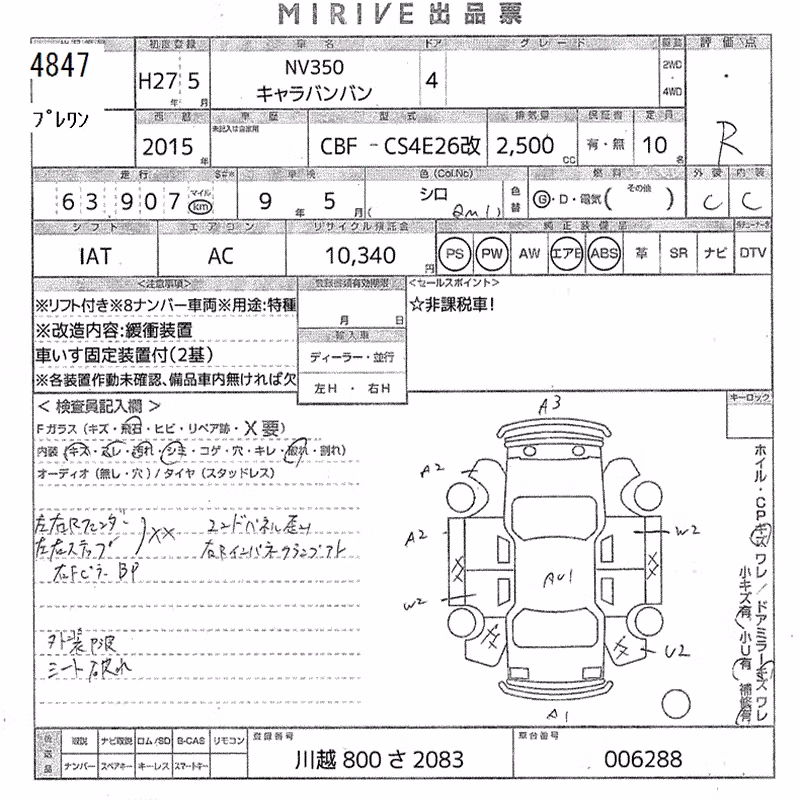 MIRIVE 出品票
4847
プレワン
初度登録
車名
ドア
グレード
評価点
H27 5
年 月
NV350
キャラバンバン
4
2WD
・
4WD
R
西暦
車歴
型式
排気量
保証書
定員
2015
年
未記入は自家用
CBF - CS4E26改
2,500
CC
有・無
10
名
走行
車検
色(Col.No)
燃料
外装
内装
63907
マイル
km
9 年 5 月
シロ
色替
G・D・電気(その他)
C
C
シフト
エアコン
リサイクル預託金
純正装備品
IAT
AC
10,340
円
PS PW AW エアB ABS 革 SR ナビ DTV
<注意事項>
※リフト付き※8ナンバー車両※用途:特種
※改造内容:緩衝装置
車いす固定装置付(2基)
※各装置作動未確認、備品車内無ければ欠
登録書類有効期限
月 日
輸入車
ディーラー・並行
左H ・ 右H
<セールスポイント>
☆非課税車!
キーロック
<検査員記入欄>
Fガラス(キズ・飛石・ヒビ・リペア跡・X要)
内装(キズ・スレ・汚れ・シミ・コゲ・穴・キレ・破れ・割れ)
オーディオ(無し・穴)/タイヤ(スタッドレス)
左右Rフェンダー
左右ステップ
XX
右Fピラー BP
エンドパネル歪み
外装凹波
シート破れ
A3
A2
A2
W2
W2
AU1
U2
A1
ホイル・CPキズ ワレ/ドアミラーキズ ワレ
小キズ有 小U有 補修有
後送品
取説 ナビ取説 ロム/SD B-CAS リモコン
ナンバー スペアキー キーレス スマートキー
登録番号
川越 800 さ 2083
車台番号
006288